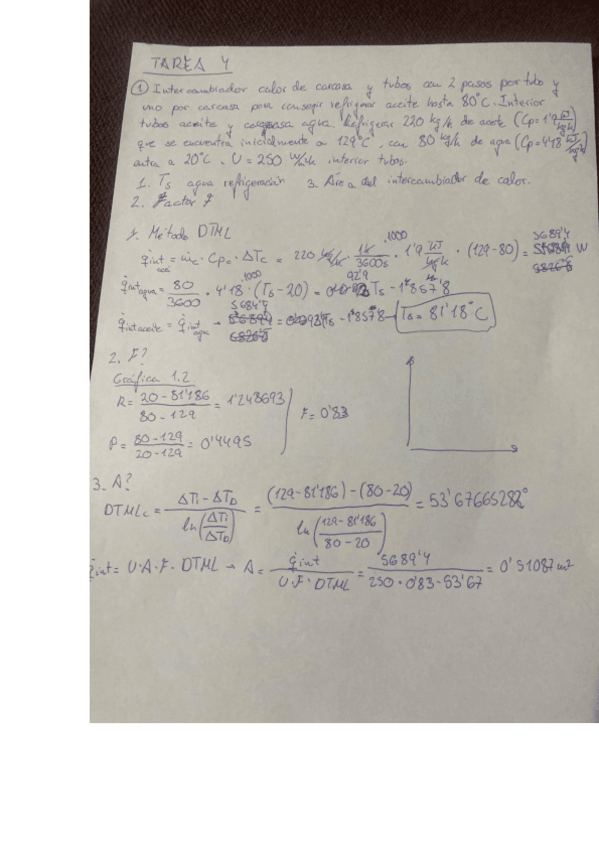 TAREA 4
① Intercambiador calor de carcasa y tubos con 2 pasos por tubo y
uno por carcasa para conseguir refrigerar aceite hasta 80°C. Interior
tubos aceite y carcasa agua. Refrigerar 220 kg/h de aceite (Cp=1'9 kJ/kg k)
que se encuentra inicialmente a 129°C, con 80 kg/h de agua (Cp=4'18 kJ/kg k)
entra a 20°C. U = 250 interior tubos.
1. Ts agua refrigeración 3. Área del intercambiador de calor.
2. Factor f
1. Método DTML
q̇int aceite = ṁc · Cpc · ΔTc = 220 kg/h · 1h/3600s · 1000 · 1'9 kJ/kg k · (129-80) = 5689'4 W
q̇int agua = 80/3600 · 4'18 · 1000 · (Ts - 20) = 92'9 Ts - 1857'8
q̇int aceite = q̇int agua → 5689'4 = 92'9 Ts - 1857'8 → Ts = 81'18°C
2. F?
Gráfica 1.2
R = 20-81'186 / 80-129 = 1'248693
F = 0'83
P = 80-129 / 20-129 = 0'4495
3. A?
DTMLc = ΔTi - ΔTD / ln(ΔTi/ΔTD) = (129-81'186)-(80-20) / ln(129-81'186 / 80-20) = 53'67665282°
q̇int = U·A·F·DTML → A = q̇int / U·F·DTML = 5689'4 / 250·0'83·53'67 = 0'51087 m²